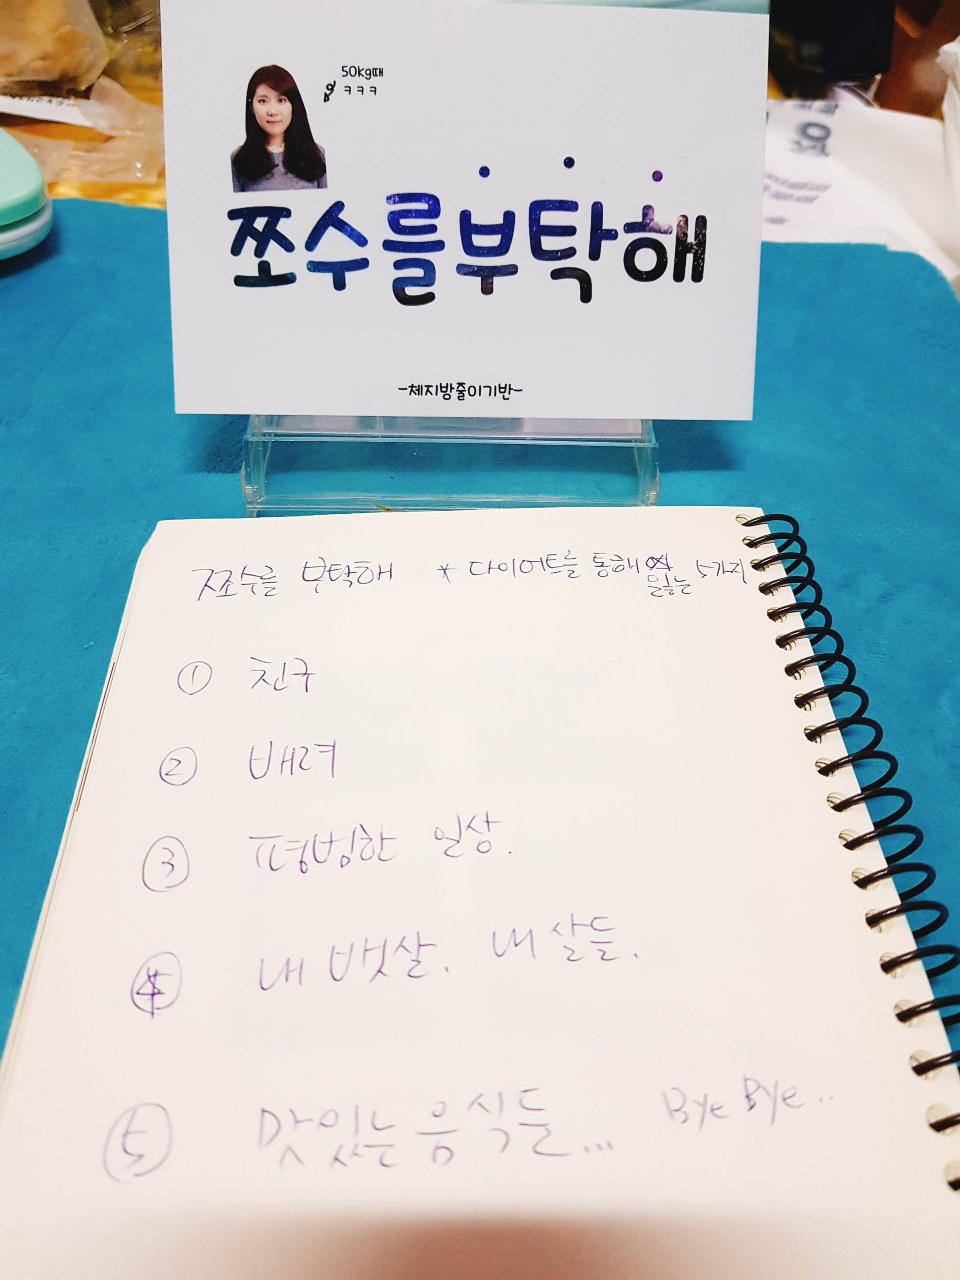 50kg때
ㅋㅋㅋ
쪼수를부탁해
-체지방줄이기반-
쪼수를 부탁해 * 다이어트를 통해 잃는 5가지
① 친구
② 배려
③ 평범한 일상.
④ 내 뱃살. 내 살들.
⑤ 맛있는 음식들... Bye Bye..